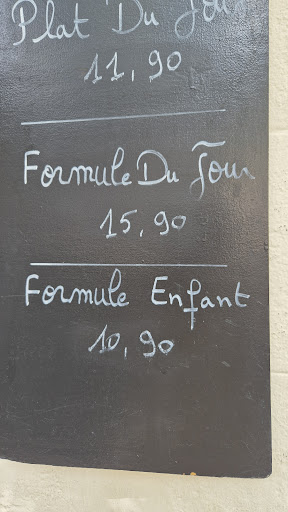 Plat Du Jour
11,90
Formule Du Jour
15,90
Formule Enfant
10,90